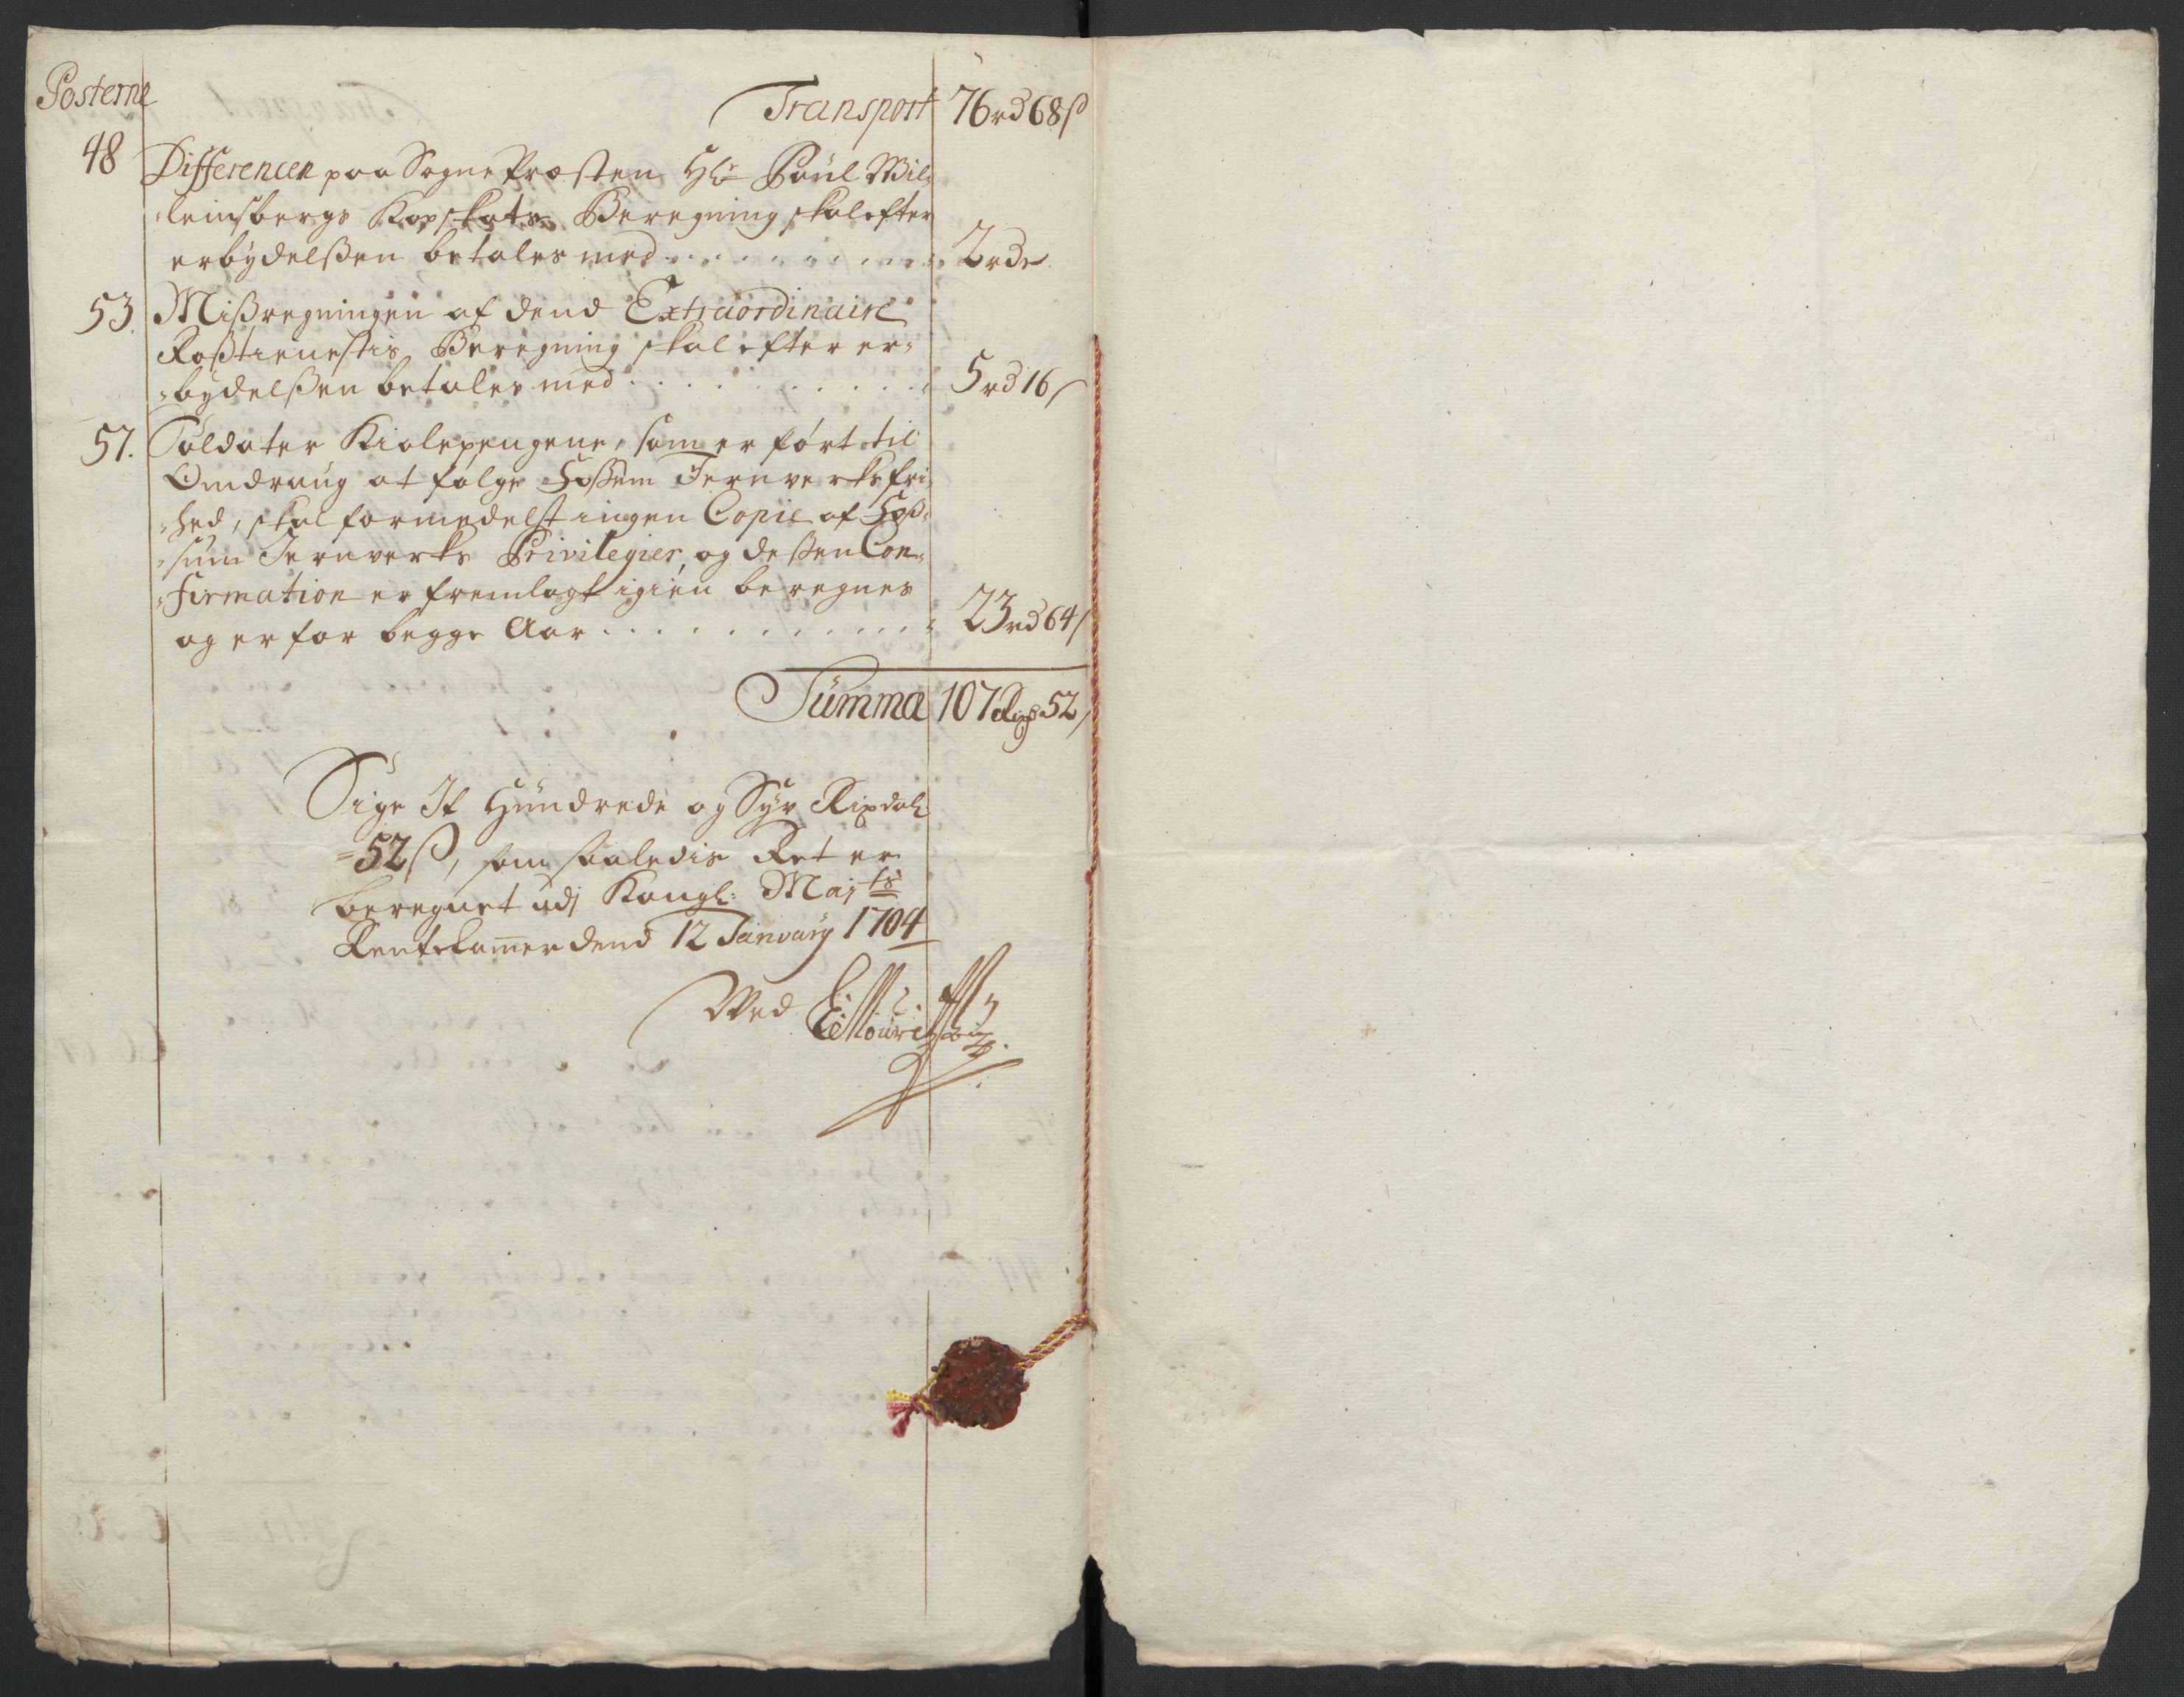 Posterne
Transport 76 rd 68 ß
48 Differencen paa Sogne Præsten Hr. Poul Wil-
-leinsbergs Kopskats Beregning skal efter
erbydelßen betales med . . . . . . . . . 2 rdr
53. Mißregningen af dend Extraordinaire
Roßtienestis Beregning skal efter er-
-bydelßen betales med . . . . . . . . . 5 rd 16 ß
57. Soldater Kiolepengene, som er ført til
Omdrang at følge Hoßem Jernverks fri-
-hed, skal formedelst ingen Copie af Hoß-
-sum Jernverks Privilegier, og deßen Con-
-firmation er fremlagt igien beregnes
og er for begge Aar . . . . . . . . . 23 rd 64 ß
Summa 107 Rixd 52 ß
Sige It Hundrede og Syv Rixdalr
52 ß, som saaledis Ret er
beregnet udj Kongl: Majts
Rentekamer dend 12 January 1704
Ved